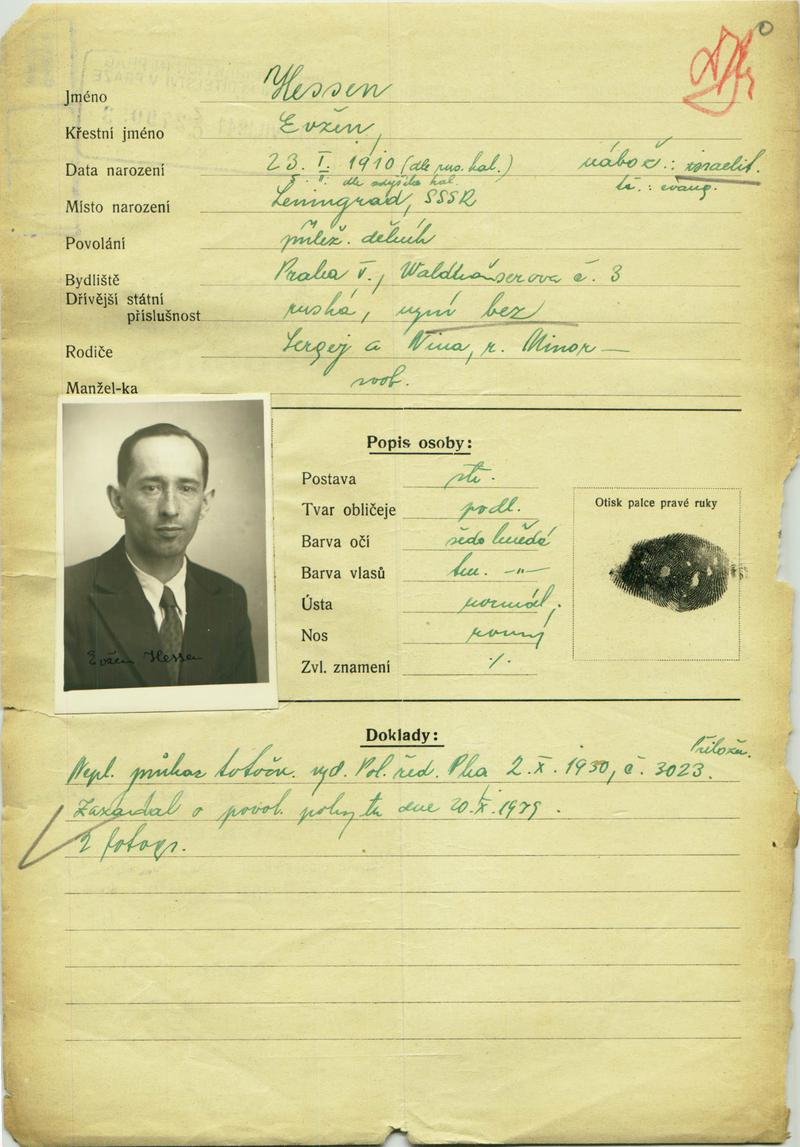 Jméno Hessen
Křestní jméno Evžen,
Data narození 23. I. 1910 (dle rus. kal.) nábož.: israelit.
5. II. dle kal. tč.: evang.
Místo narození Leningrad, SSSR
Povolání přílež. dělník
Bydliště Praha V., Waldhauserova č. 3
Dřívější státní
příslušnost ruská, nyní bez
Rodiče Sergej a Nina, r. Minor —
Manžel-ka svob.
Popis osoby:
Postava stř.
Tvar obličeje podl.
Barva očí šedo hnědé
Barva vlasů tm. -„-
Ústa normál,
Nos rovný
Zvl. znamení ·/·
Otisk palce pravé ruky
Evžen Hessen
Doklady:
Přilože.
Nepl. průkaz totožn. vyd. Pol. řed. Pha 2. X. 1930, č. 3023.
Zažádal o povol. pobytu dne 20. X. 1939.
2 fotogr.